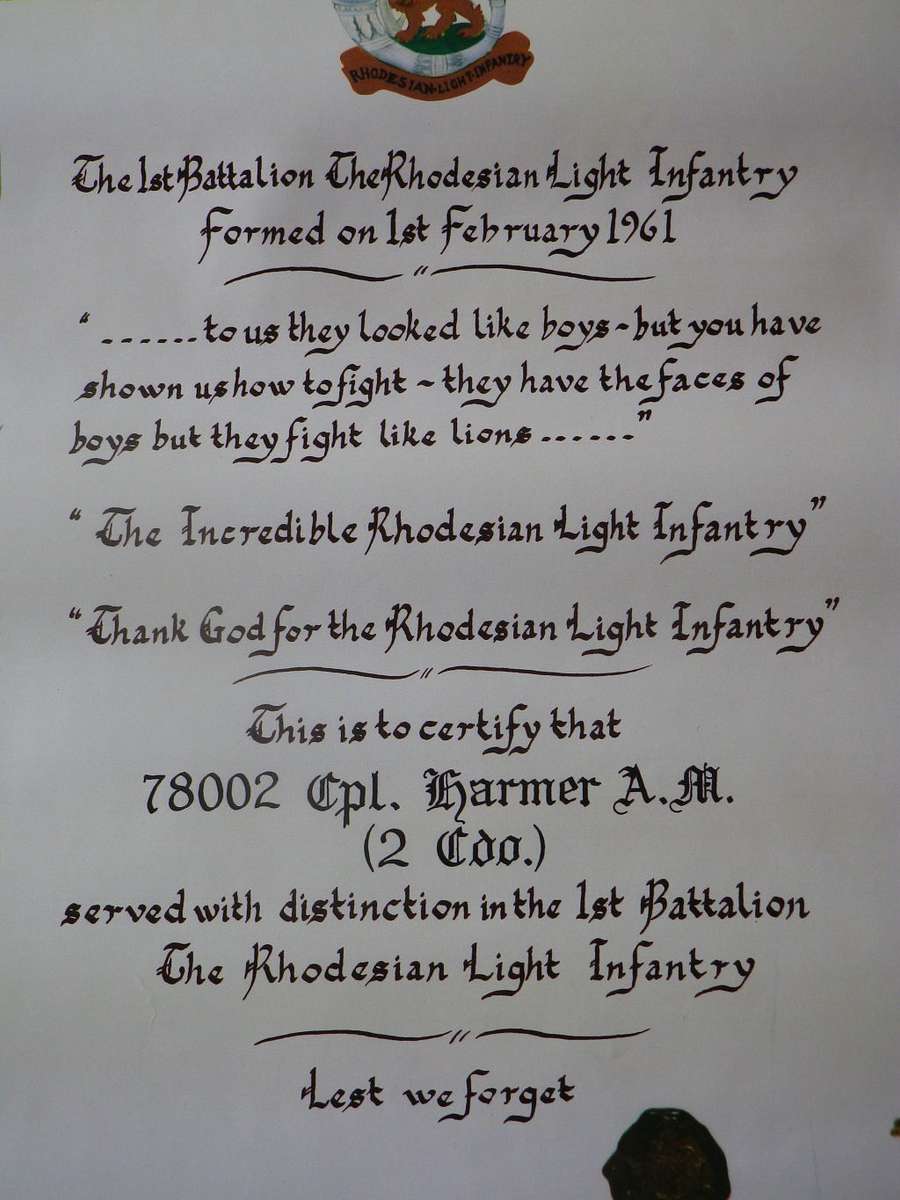 RHODESIAN·LIGHT·INFANTRY
The 1st Battalion The Rhodesian Light Infantry
formed on 1st February 1961
“ ......to us they looked like boys~but you have
shown us how to fight ~ they have the faces of
boys but they fight like lions ......”
“ The Incredible Rhodesian Light Infantry”
“Thank God for the Rhodesian Light Infantry”
This is to certify that
78002 Cpl. Harmer A.M.
(2 Cdo.)
served with distinction in the 1st Battalion
The Rhodesian Light Infantry
Lest we forget